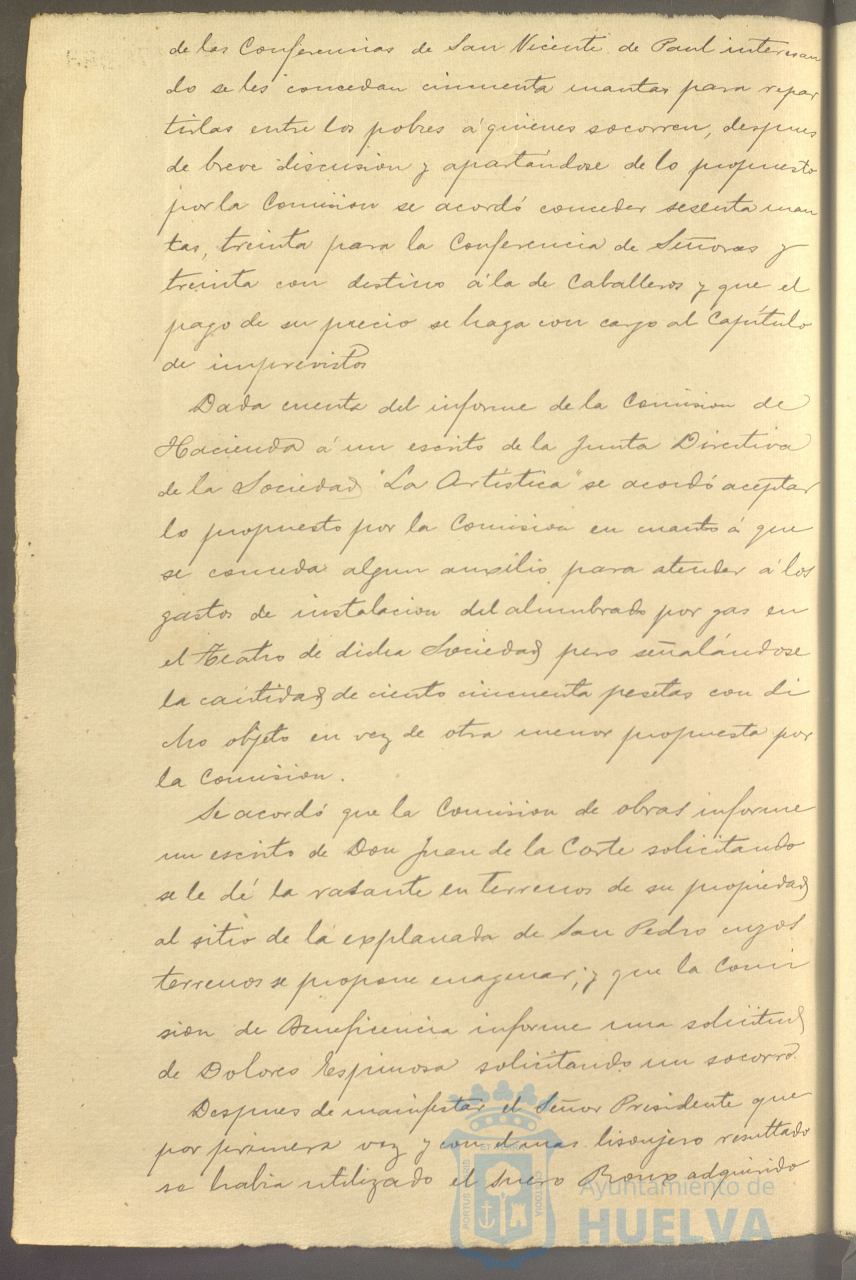 de las Conferencias de San Vicente de Paul interesan
do se les concedan cincuenta mantas para repar
tirlas entre los pobres á quienes socorren, despues
de breve discusion y apartándose de lo propuesto
por la Comision se acordó conceder sesenta man
tas, treinta para la Conferencia de Señoras y
treinta con destino á la de Caballeros y que el
pago de su precio se haga con cargo al Capítulo
de imprevistos
Dada cuenta del informe de la Comision de
Hacienda á un escrito de la Junta Directiva
de la Sociedad "La Artística" se acordó aceptar
lo propuesto por la Comision en cuanto á que
se conceda algun auxilio para atender á los
gastos de instalacion del alumbrado por gas en
el Teatro de dicha Sociedad pero señalándose
la cantidad de ciento cincuenta pesetas con di
cho objeto en vez de otra menor propuesta por
la Comision.
Se acordó que la Comision de obras informe
un escrito de Don Juan de la Corte solicitando
se le dé la rasante en terrenos de su propiedad
al sitio de la explanada de San Pedro cuyos
terrenos se propone enagenar; y que la Comi
sion de Beneficencia informe una solicitud
de Dolores Espinosa solicitando un socorro.
Despues de manifestar el Señor Presidente que
por primera vez y con el mas lisonjero resultado
se habia utilizado el suero Roux adquirido
Ayuntamiento de
HUELVA
PORTUS MARIS
ET TERRAE
CUSTODIA